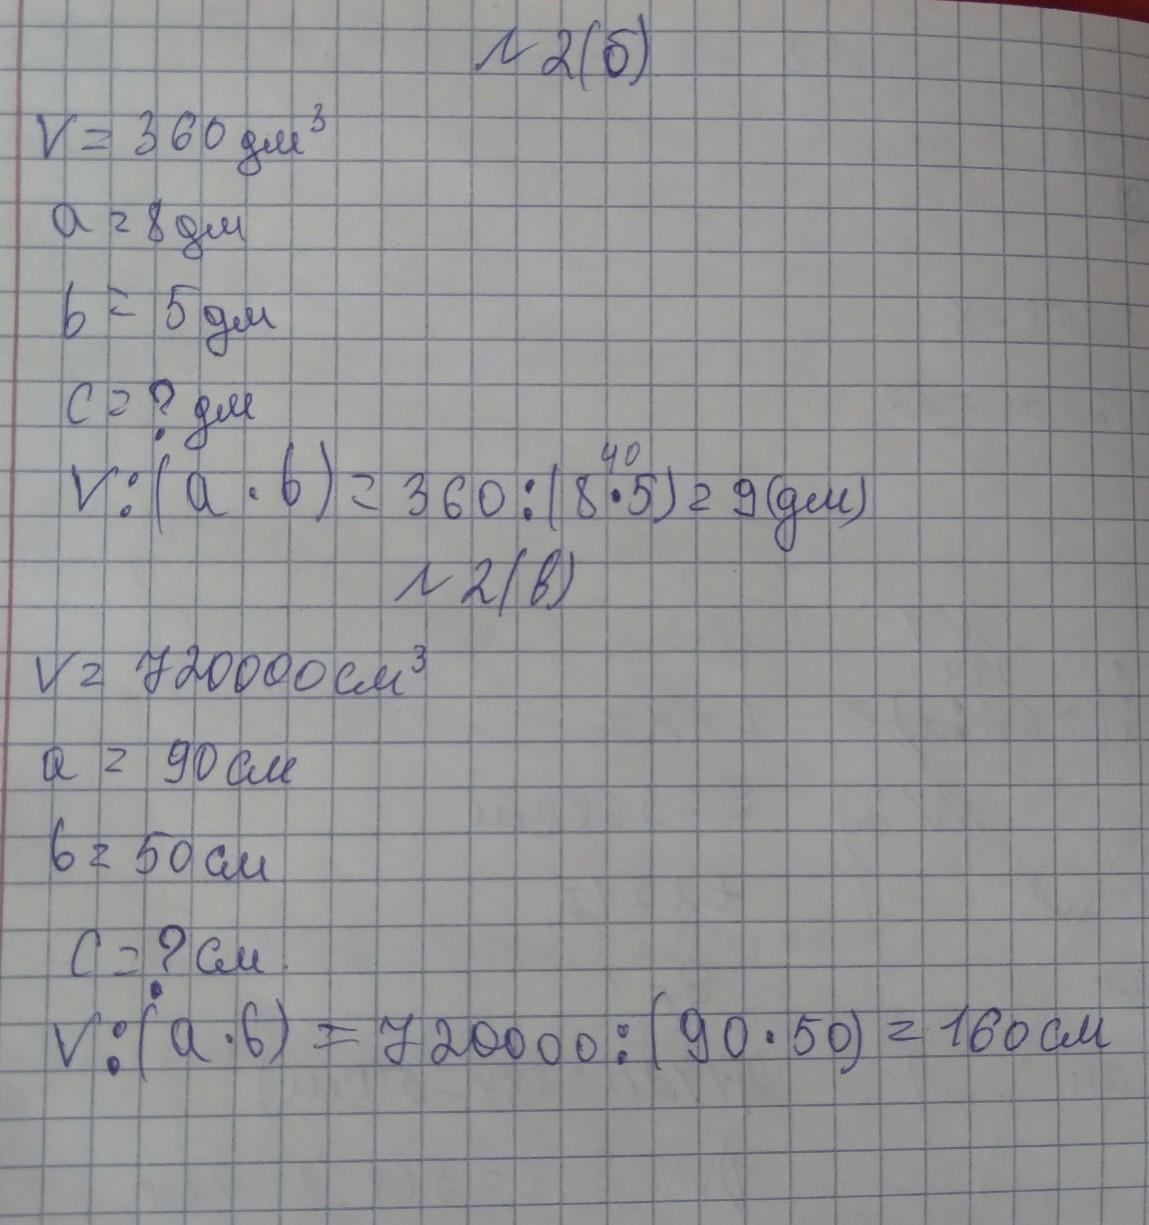 № 2(б)
V = 360 дм³
a = 8 дм
b = 5 дм
c = ? дм
40
V:(a·b) = 360:(8·5) = 9(дм)
№ 2(в)
V = 720000 см³
a = 90 см
b = 50 см
c = ? см
V:(a·b) = 720000:(90·50) = 160 см